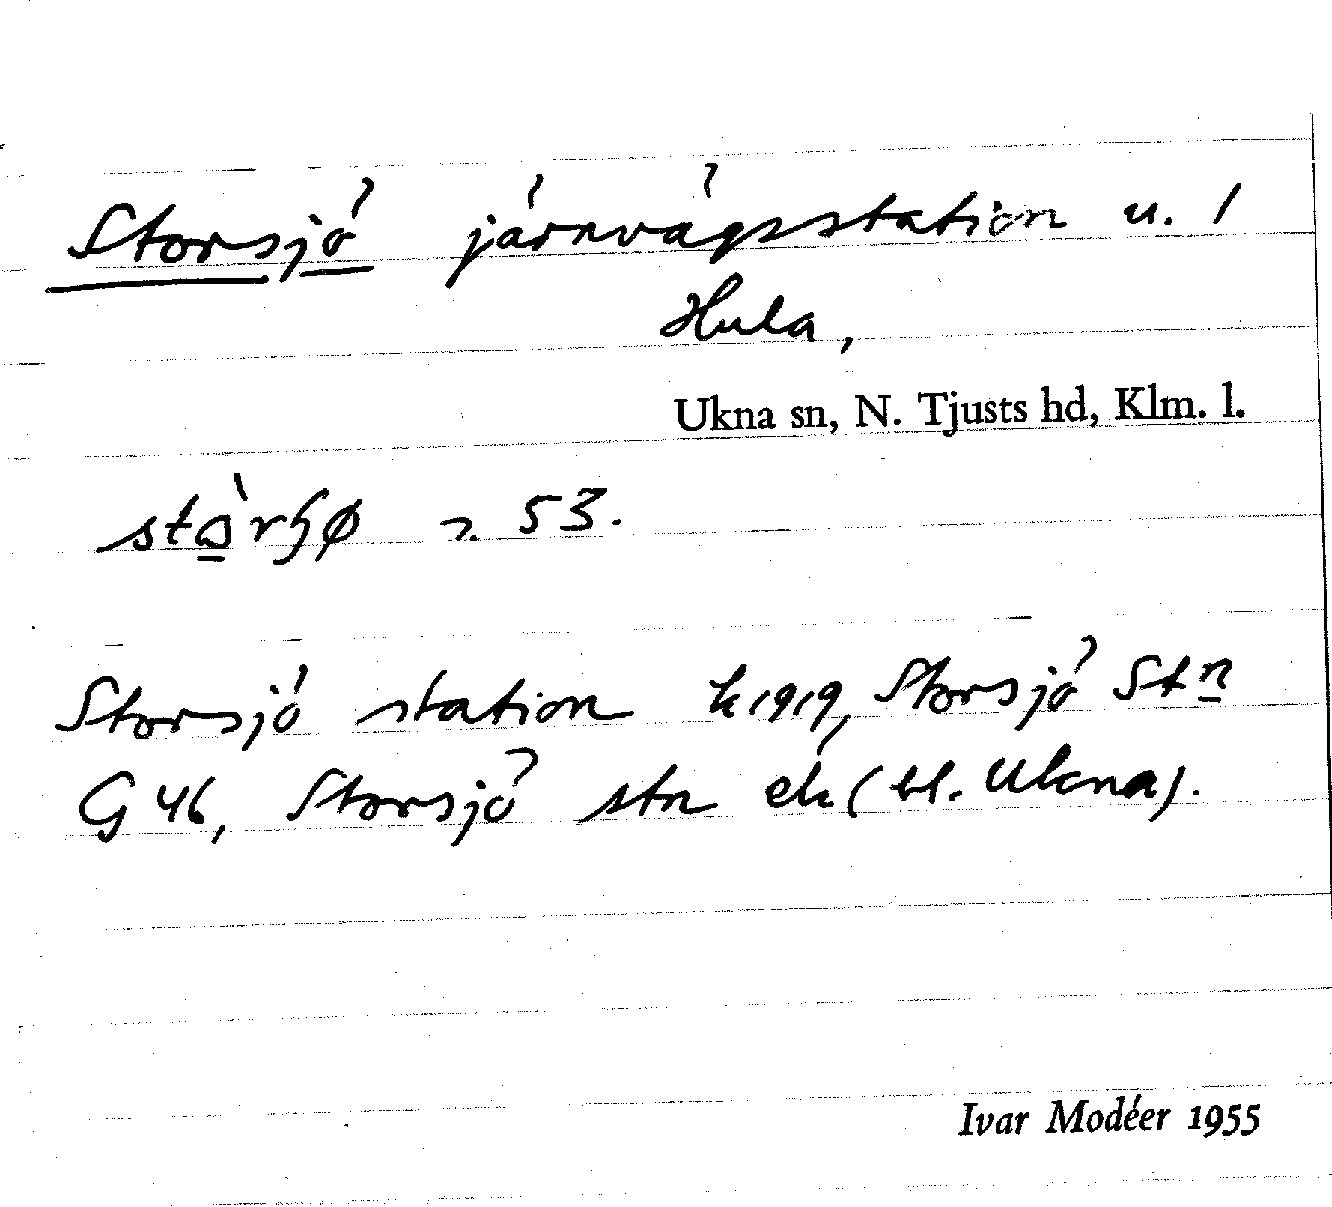 Storsjö järnvägsstation u. /
Hula,
Ukna sn, N. Tjusts hd, Klm. l.
53.
Storsjö station k 1919, Storsjö Stn
G 46, Storsjö stn ek (bl. Ukna).
Ivar Modéer 1955